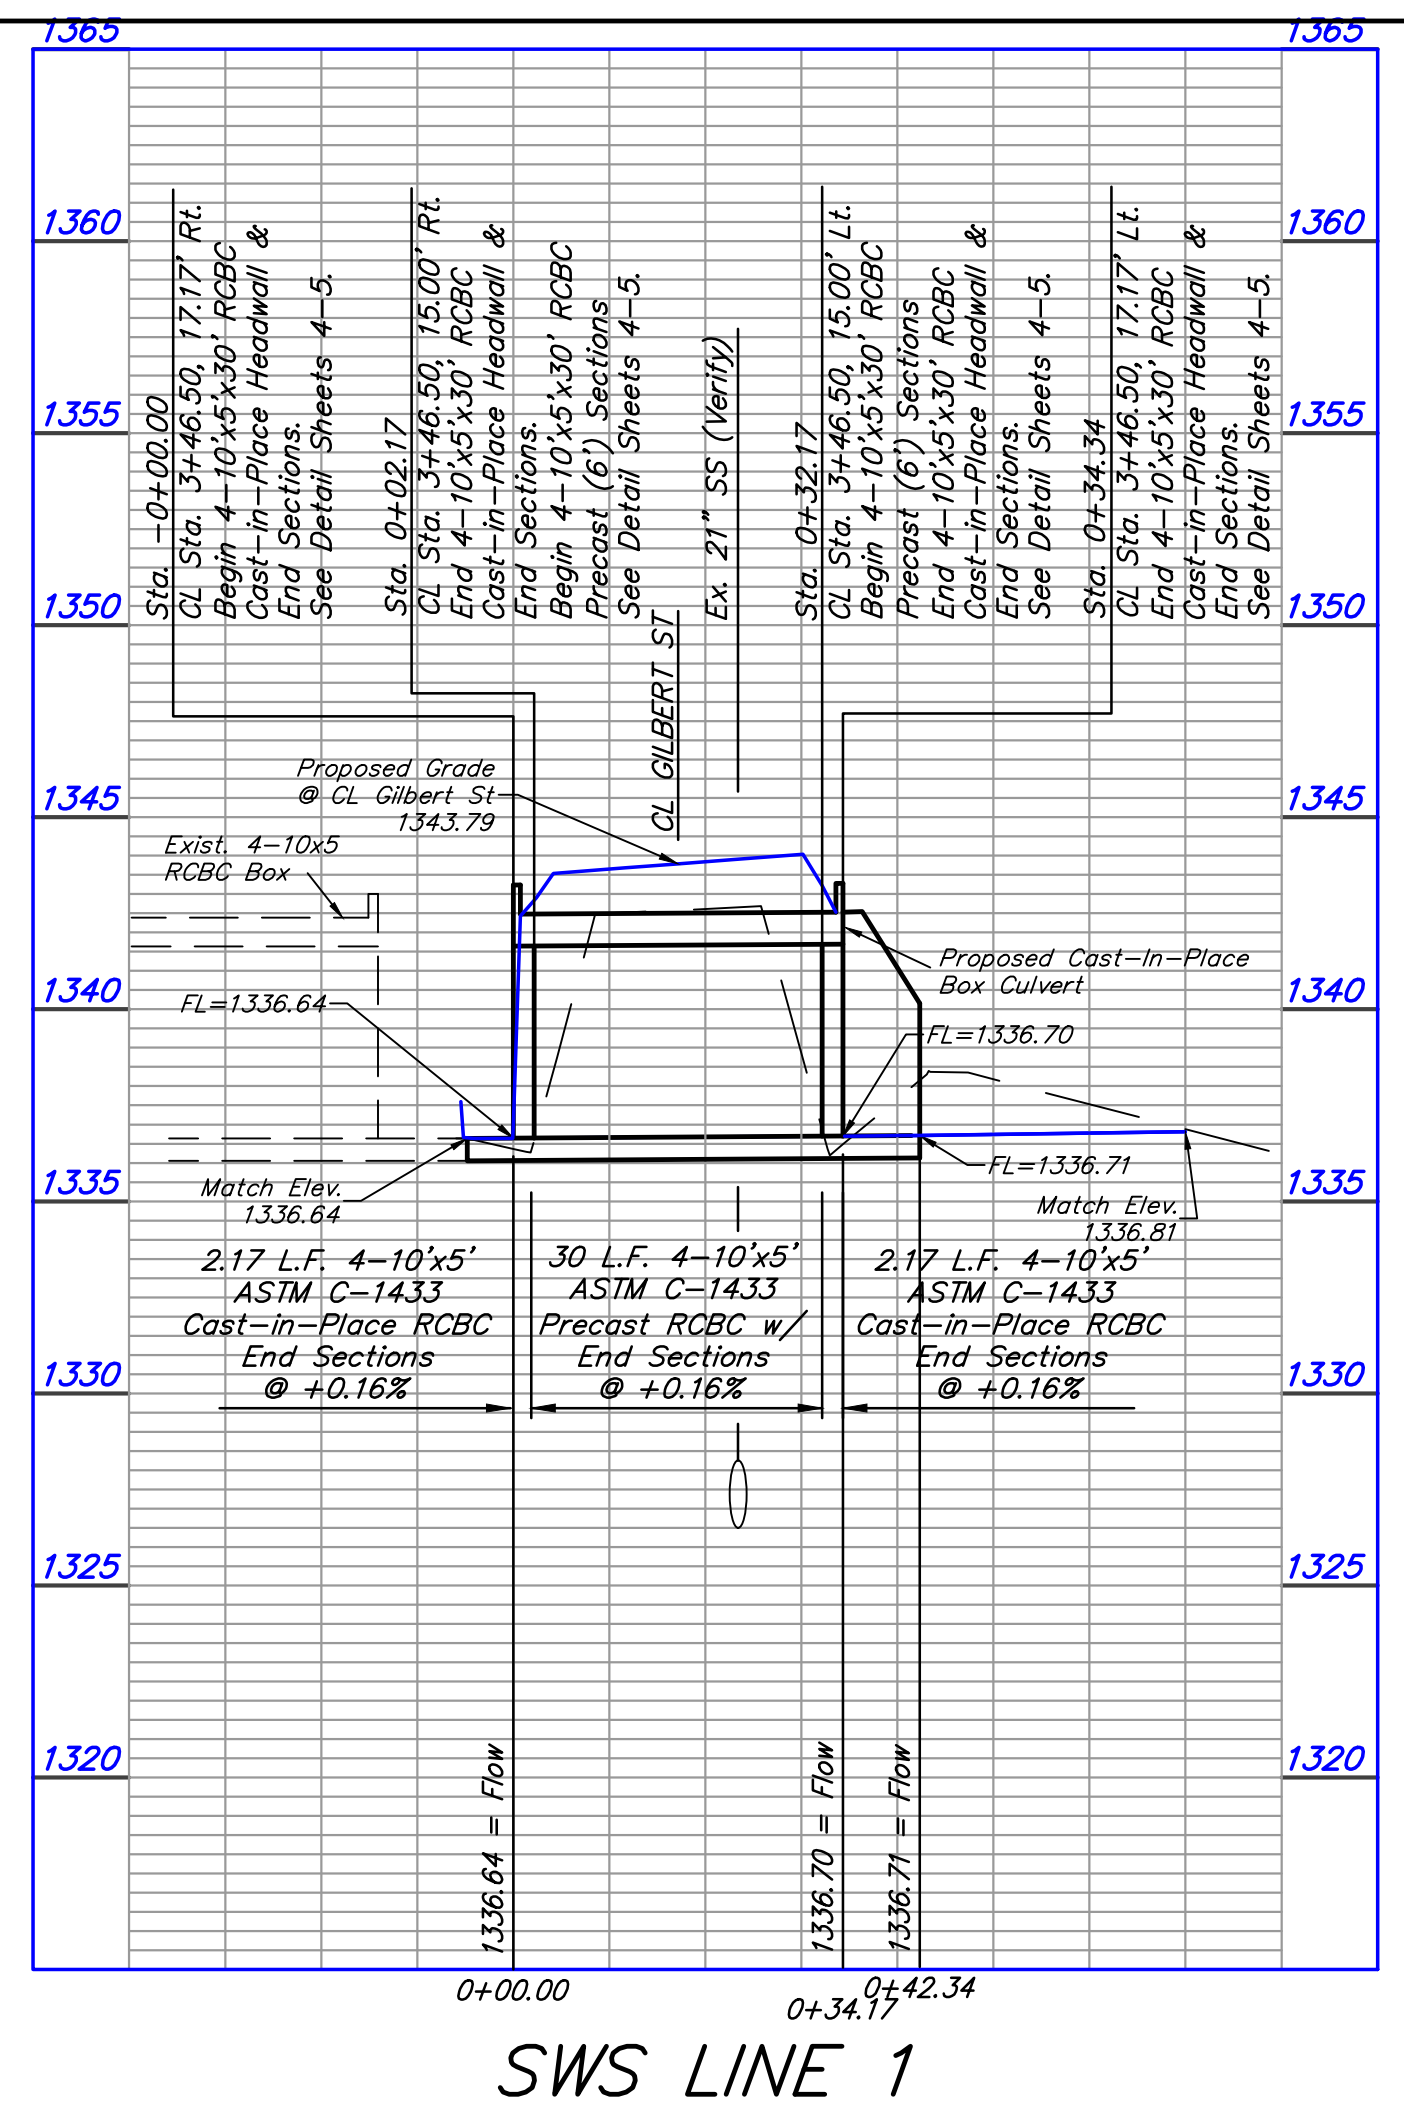 1365
1365
1360
1360
1355
1355
1350
1350
1345
1345
1340
1340
1335
1335
1330
1330
1325
1325
1320
1320
Sta. -0+00.00
CL Sta. 3+46.50, 17.17' Rt.
Begin 4-10'x5'x30' RCBC
Cast-in-Place Headwall &
End Sections.
See Detail Sheets 4-5.
Sta. 0+02.17
CL Sta. 3+46.50, 15.00' Rt.
End 4-10'x5'x30' RCBC
Cast-in-Place Headwall &
End Sections.
Begin 4-10'x5'x30' RCBC
Precast (6') Sections
See Detail Sheets 4-5.
CL GILBERT ST
Ex. 21" SS (Verify)
Sta. 0+32.17
CL Sta. 3+46.50, 15.00' Lt.
Begin 4-10'x5'x30' RCBC
Precast (6') Sections
End 4-10'x5'x30' RCBC
Cast-in-Place Headwall &
End Sections.
See Detail Sheets 4-5.
Sta. 0+34.34
CL Sta. 3+46.50, 17.17' Lt.
End 4-10'x5'x30' RCBC
Cast-in-Place Headwall &
End Sections.
See Detail Sheets 4-5.
Proposed Grade
@ CL Gilbert St
1343.79
Exist. 4-10x5
RCBC Box
Proposed Cast-In-Place
Box Culvert
FL=1336.64
FL=1336.70
FL=1336.71
Match Elev.
1336.64
Match Elev.
1336.81
2.17 L.F. 4-10'x5'
ASTM C-1433
Cast-in-Place RCBC
End Sections
@ +0.16%
30 L.F. 4-10'x5'
ASTM C-1433
Precast RCBC w/
End Sections
@ +0.16%
2.17 L.F. 4-10'x5'
ASTM C-1433
Cast-in-Place RCBC
End Sections
@ +0.16%
1336.64 = Flow
1336.70 = Flow
1336.71 = Flow
0+00.00
0+34.17
0+42.34
SWS LINE 1